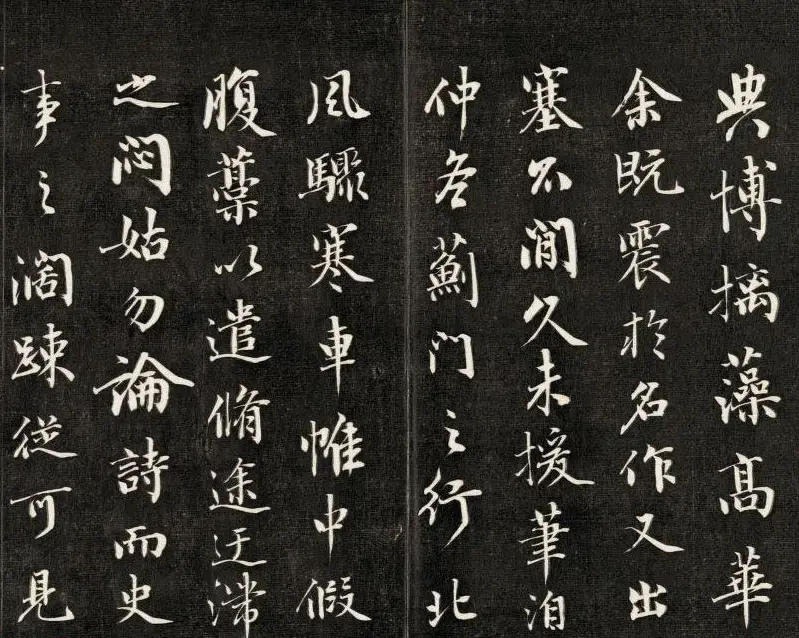 典博摛藻高華
余既震於名作又出
塞不閒久未援筆洎
仲冬薊門之行北
風驟寒車帷中假
腹藁以遣脩途迂滯
之悶姑勿論詩而史
事之濶踈從可見